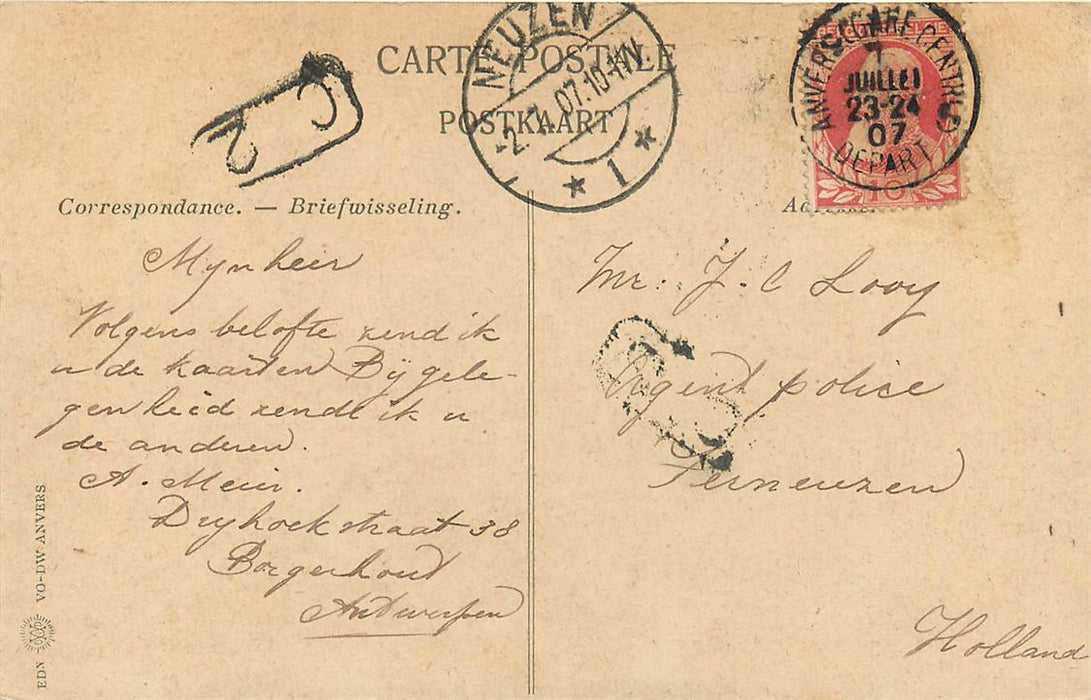 CARTE POSTALE
POSTKAART
NEUZEN
-2.7.07.10-11V
1
ANVERS (GARE CENTRALE)
1
JUILLET
23-24
07
DEPART
10
Correspondance. — Briefwisseling.
Mijnheer
Volgens belofte zend ik
u de kaarten Bij gele-
genheid zendt ik u
de anderen.
A. Meir.
Dryhoekstraat 38
Borgerhout
Antwerpen
Mr: J. C Looy
Agent police
Terneuzen
Holland
EDN VO-DW ANVERS